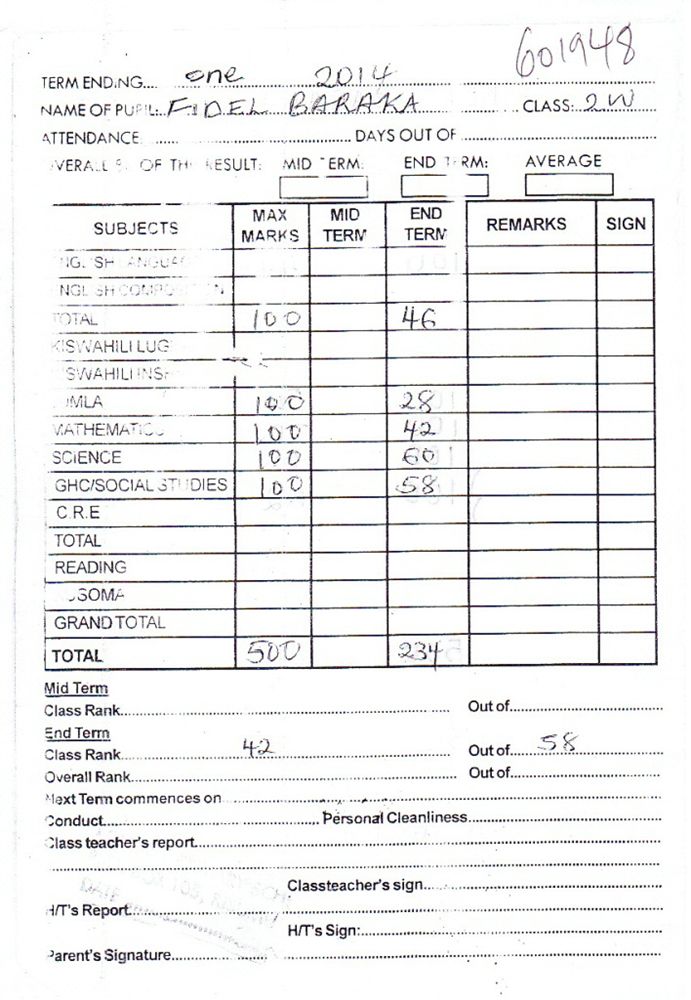 601948
TERM ENDING.... one 2014
NAME OF PUPIL: FIDEL BARAKA CLASS: 2W
ATTENDANCE DAYS OUT OF
OF RESULT: MID TERM: END TERM: AVERAGE
SUBJECTS MAX MARKS MID TERM END TERM REMARKS SIGN
ENGLISH LANGUAGE
ENGLISH COMPOSITION
TOTAL 100 46
KISWAHILI LUG
KISWAHILI INSH
JUMLA 100 28
MATHEMATICS 100 42
SCIENCE 100 60
GHC/SOCIAL STUDIES 100 58
C.R.E
TOTAL
READING
KUSOMA
GRAND TOTAL
TOTAL 500 234
Mid Term
Class Rank Out of
End Term
Class Rank 42 Out of 58
Overall Rank Out of
Next Term commences on
Conduct Personal Cleanliness
Class teacher's report
Classteacher's sign
H/T's Report
H/T's Sign:
Parent's Signature